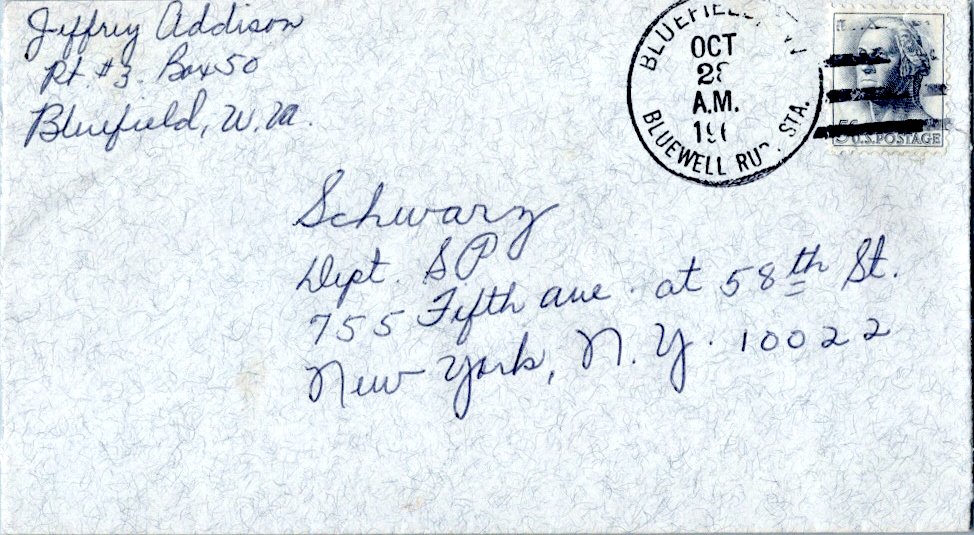 Jeffrey Addison
Rt #3 Box 50
Bluefield, W. Va.
OCT
28
A.M.
BLUEWELL STA.
5c
U.S. POSTAGE
Schwarz
Dept. SP
755 Fifth ave. at 58th St.
New York, N.Y. 10022